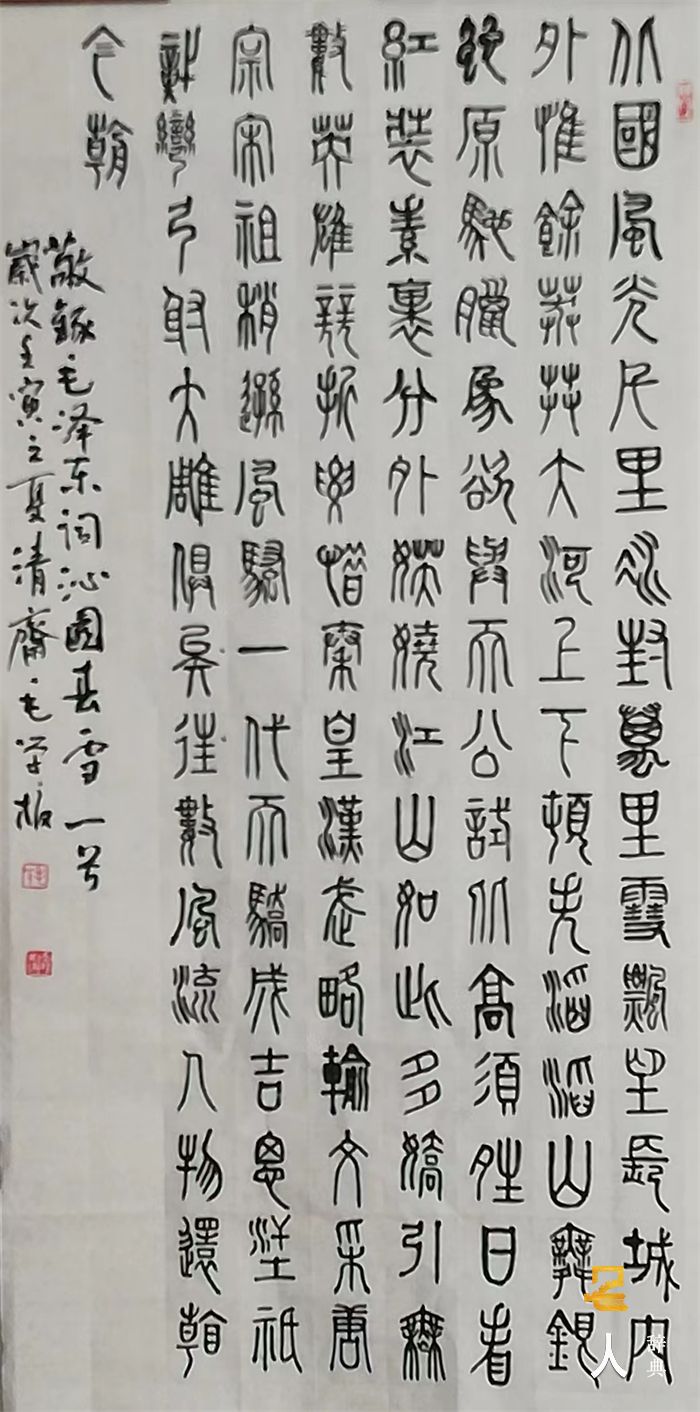 北國風光千里冰封萬里雪飄望長城內
外惟餘莽莽大河上下頓失滔滔山舞銀
蛇原馳臘象欲與天公試比高須晴日看
紅裝素裹分外妖嬈江山如此多嬌引無
數英雄競折腰惜秦皇漢武略輸文采唐
宗宋祖稍遜風騷一代天驕成吉思汗祇
識彎弓射大雕俱矣往數風流人物還看
今朝
敬錄毛泽东词沁園春雪一首
歲次壬寅之夏清齋毛学
名人辞典